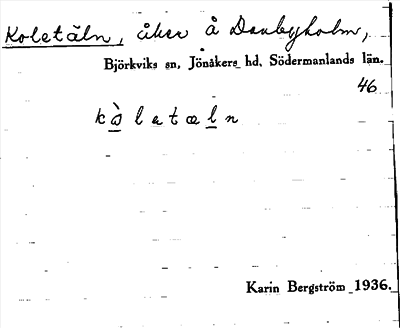 Koletäln, åker å Danbyholm,
Björkviks sn, Jönåkers hd, Södermanlands län.
46
kòlatæln
Karin Bergström 1936.